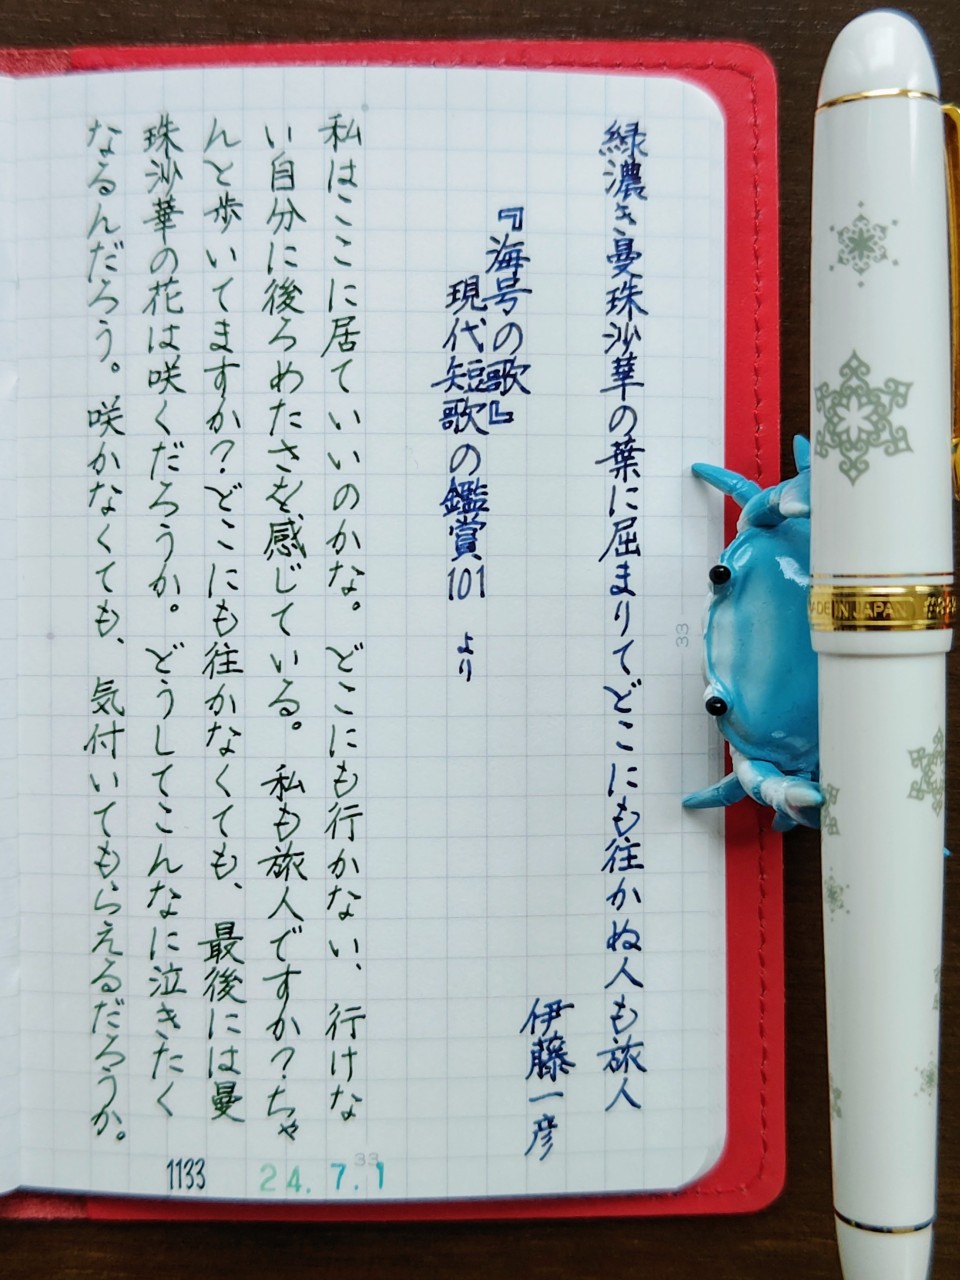 緑濃き曼珠沙華の葉に屈まりてどこにも往かぬ人も旅人
伊藤一彦
『海号の歌』
現代短歌の鑑賞101 より
私はここに居ていいのかな。どこにも行かない、行けな
い自分に後ろめたさを感じている。私も旅人ですか?ちゃ
んと歩いてますか?どこにも往かなくても、最後には曼
珠沙華の花は咲くだろうか。どうしてこんなに泣きたく
なるんだろう。咲かなくても、気付いてもらえるだろうか。
1133
24.7.1
33
33
MADE IN JAPAN